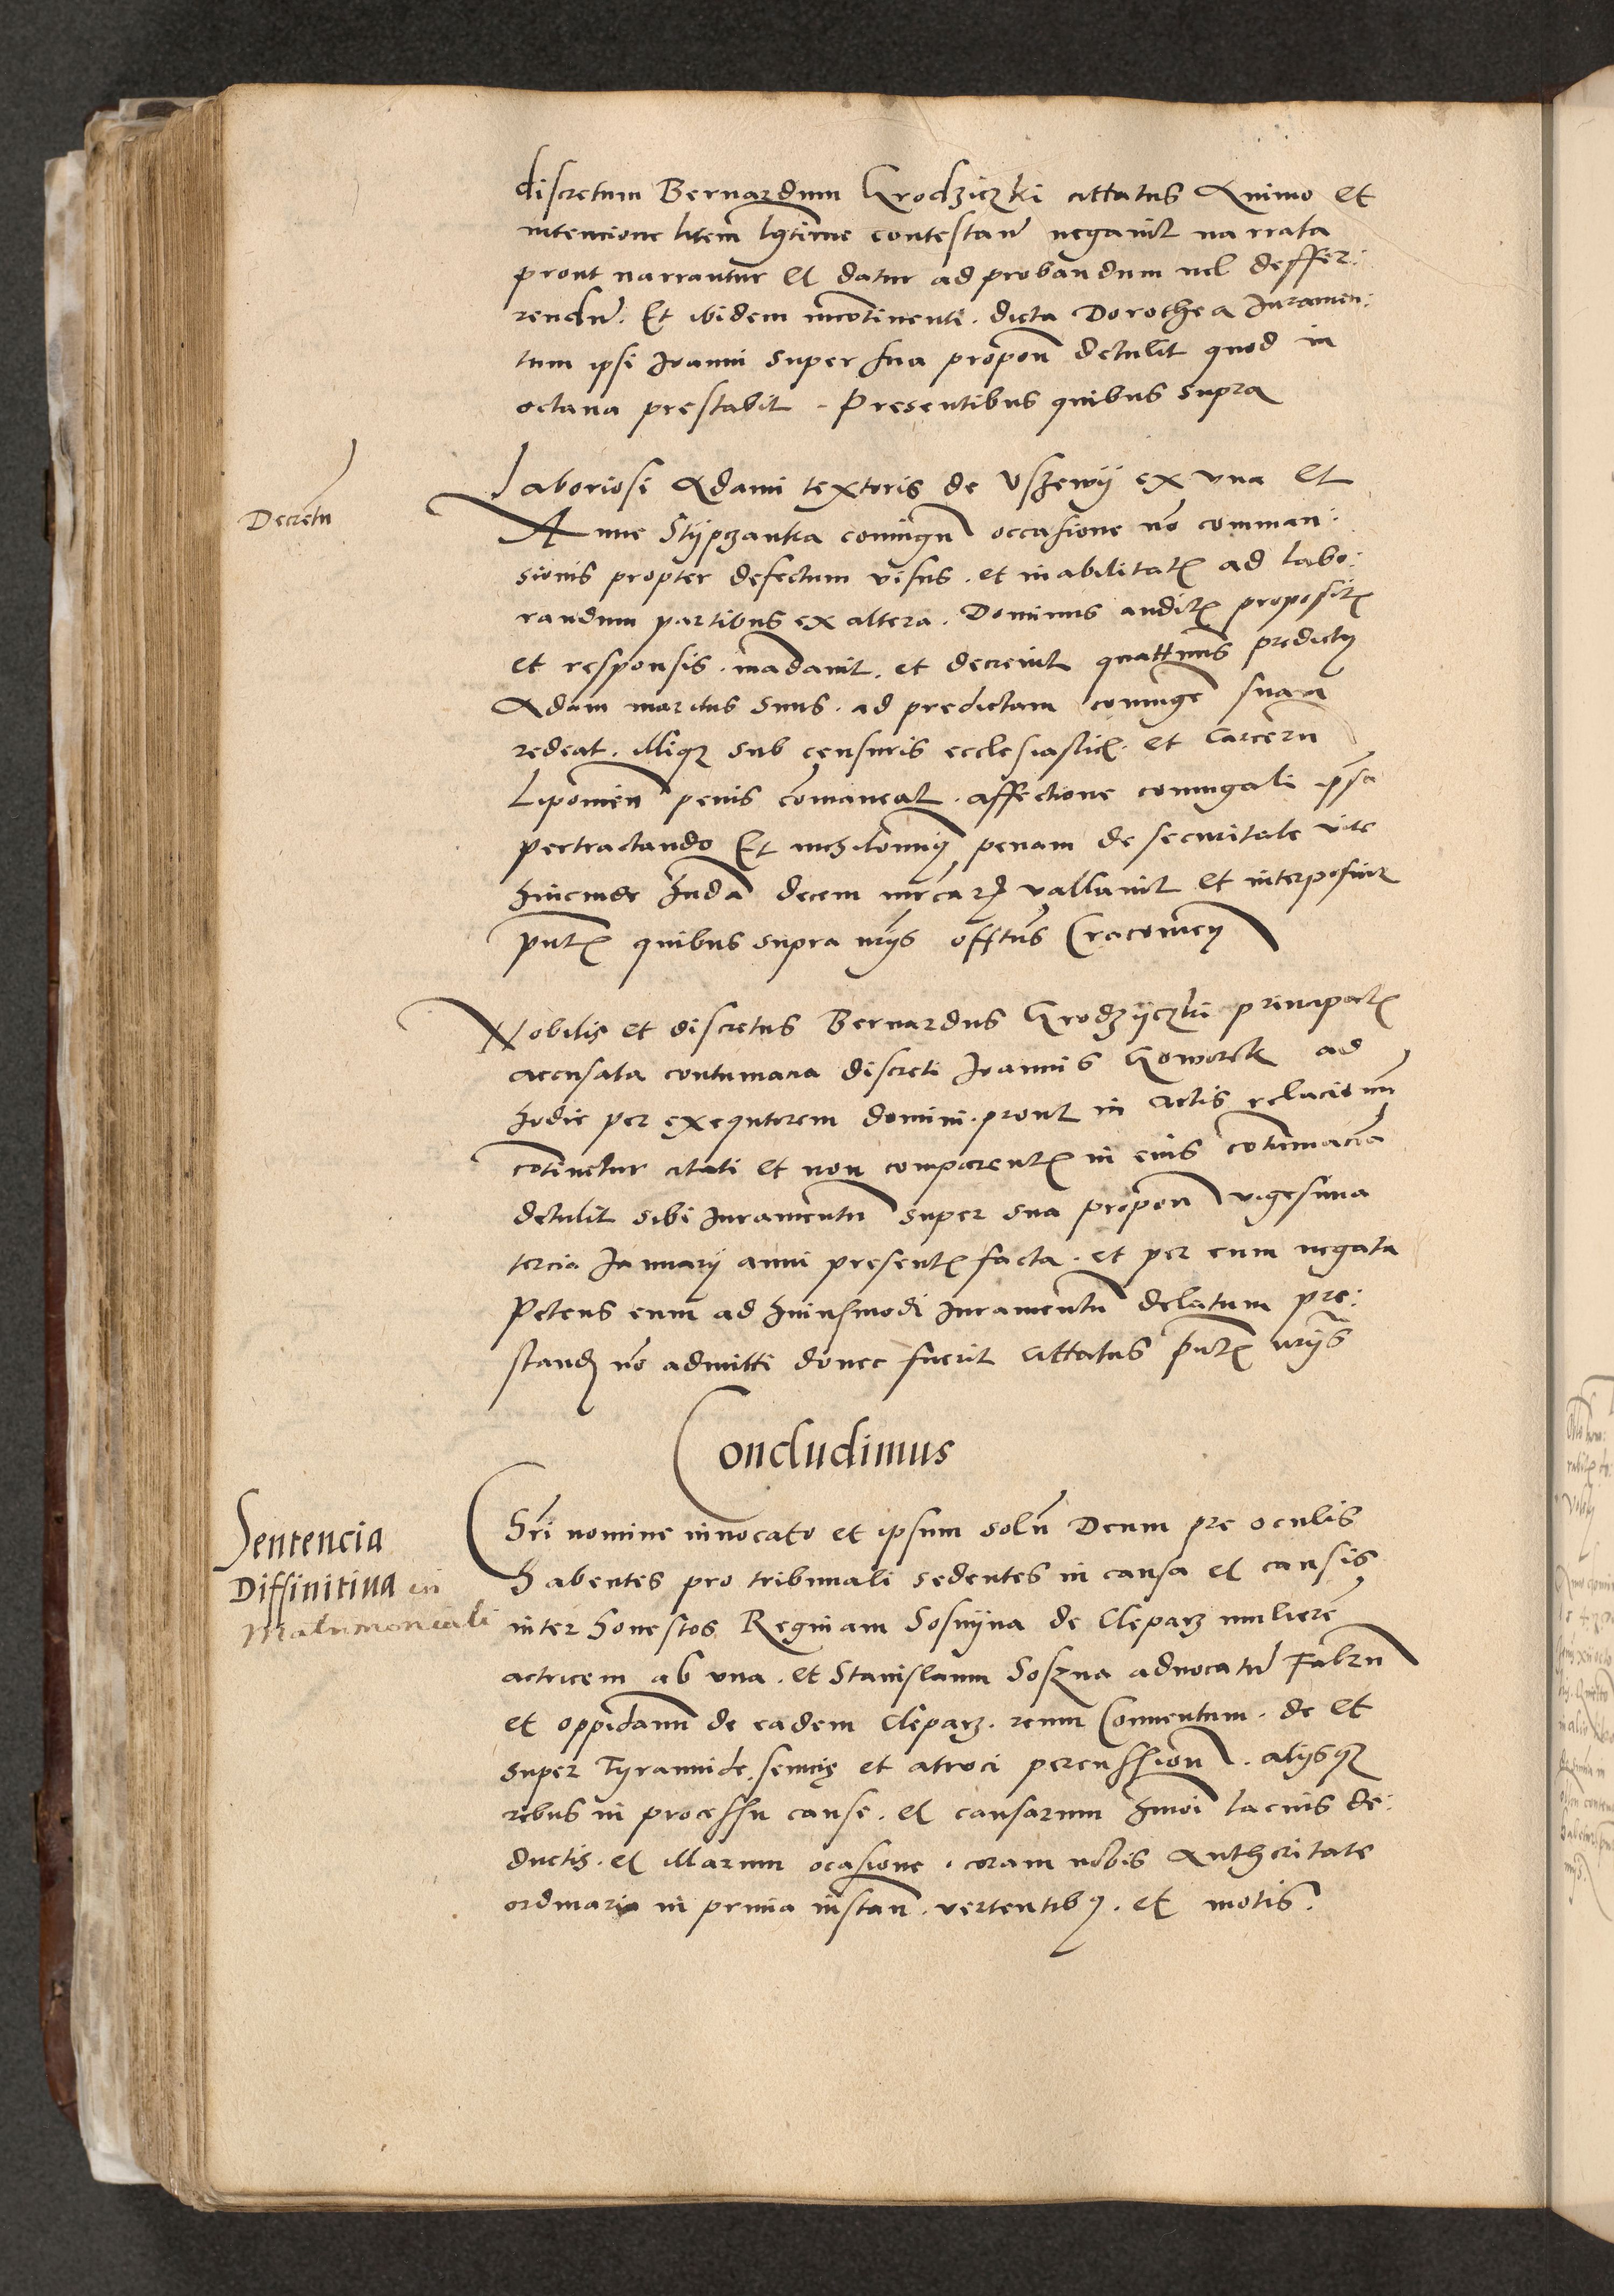 discretum Bernardum Grodziczki cittatus Animo et
intencione litem lgtime contestan negavit narrata
prout narrantur et datur ad probandum vel deffer:
rendu. Et ibidem incotinenti. dicta Dorothea Iuramen:
tum ipsi Ioanni super sua propon detulit quod in
octava prestabit. Presentibus quibus supra
Laboriosi Adami textoris de Uszewij ex una et
Decretu
Anne Stypczanka coniugu occasione no comman:
sionis propter defectum visus. et inabilitate ad labo:
randum partibus ex altera. Dominus auditis propositis
et responsis. madavit. et decrevit quattenus predictus
Adam maritus suus. ad predictam coniuge suam
redeat. illiqz sub censuris ecclesiasticis. et Carceru
Lipomien penis comaneat. affectione coniugali ipsa
pertractando Et nichilominus penam de securitate vite
huicinde Inda decem mrcarum vallavit et interposuit
pntibus quibus supra nrijs offtus Cracovien
Nobilis et discretus Bernardus Grodzijczki principalis
accusata contumacia discreti Ioannis Goworek ad
hodie per exequtorem domini. prout in actis relacionu
cotinetur citati et non comparentis in eius cotumacia
detulit sibi Iuramentu super sua propon vigesima
tercia Ianuarij anni presentis facta. et per eum negata
Petens eum ad huiusmodi Iuramentu delatum pre:
stand no admitti donec fuerit cittatus pntibus nrijs
Concludimus
Sentencia
Diffinitiva in
Matrimoniali
Chri nomine invocato et ipsum solu Deum pre oculis
habentes pro tribunali sedentes in causa et causis
inter honestos Reginam Sosnijna de Cleparz muliere
actricem ab una. et Stanislaum Soszna advocatu Fabru
et oppidanu de eadem Cleparz. reum Conventum. de et
super Tyrannide. seviciis et atroci percussion. alijsqz
rebus in processu cause. et causarum hmoi lacius de:
ductis. et illarum ocasione. coram nobis Authoritate
ordinaria in prima instan. vertentibus. et motis.